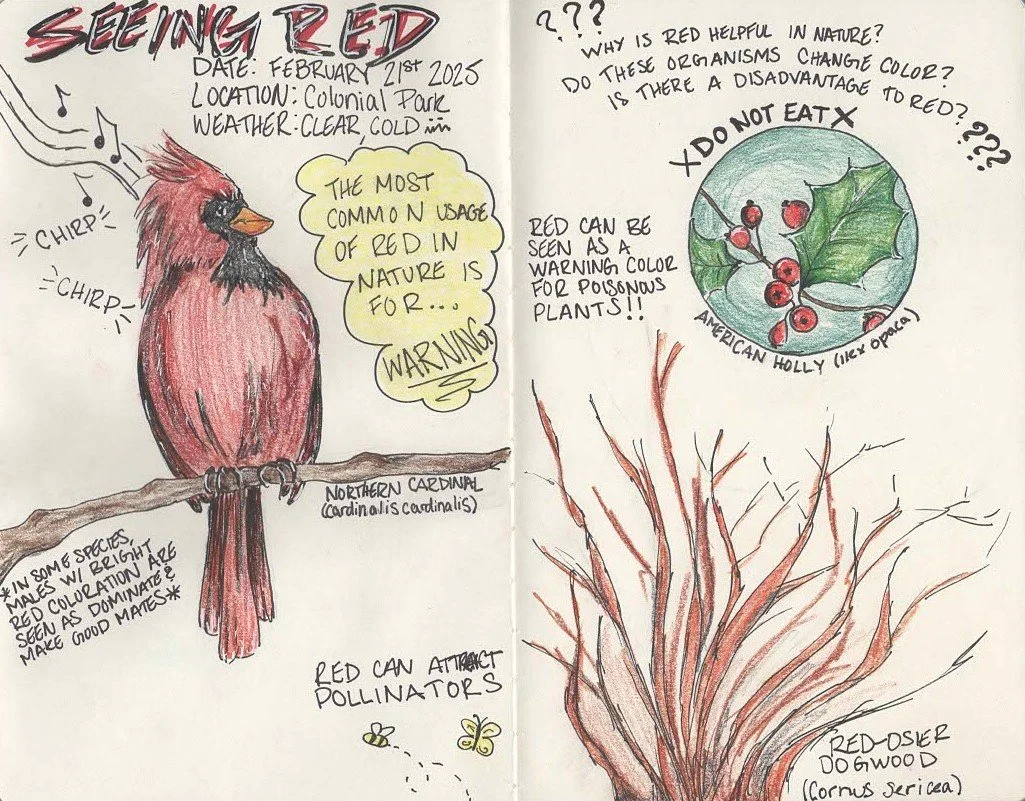 SEEING RED
DATE: FEBRUARY 21st 2025
LOCATION: Colonial Park
WEATHER: CLEAR, COLD
CHIRP
CHIRP
THE MOST
COMMON USAGE
OF RED IN
NATURE IS
FOR...
WARNING
NORTHERN CARDINAL
(cardinalis cardinalis)
*IN SOME SPECIES,
MALES W/ BRIGHT
RED COLORATION ARE
SEEN AS DOMINATE &
MAKE GOOD MATES*
RED CAN ATTRACT
POLLINATORS
???
WHY IS RED HELPFUL IN NATURE?
DO THESE ORGANISMS CHANGE COLOR?
IS THERE A DISADVANTAGE TO RED?
???
X DO NOT EAT X
RED CAN BE
SEEN AS A
WARNING COLOR
FOR POISONOUS
PLANTS!!
AMERICAN HOLLY (Ilex opaca)
RED-OSIER
DOGWOOD
(Cornus sericea)